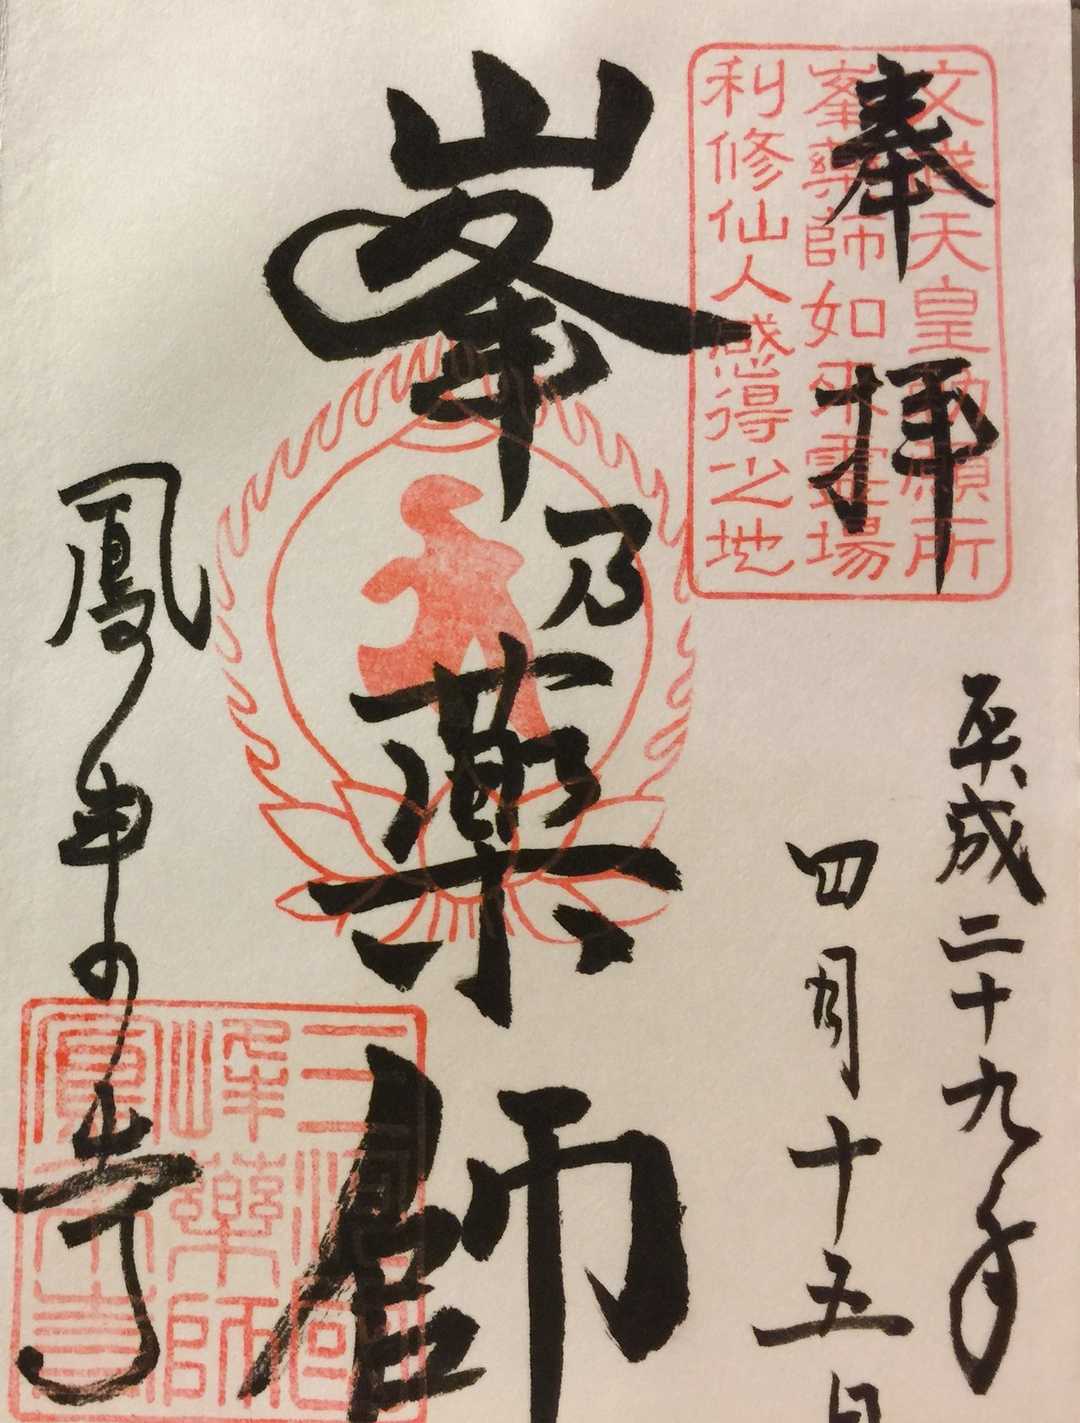 奉拝
文武天皇勅願所
峯藥師如来霊場
利修仙人感得之地
平成二十九年
四月十五日
峯乃薬師
鳳来寺
三河國
峰藥師
鳳来寺